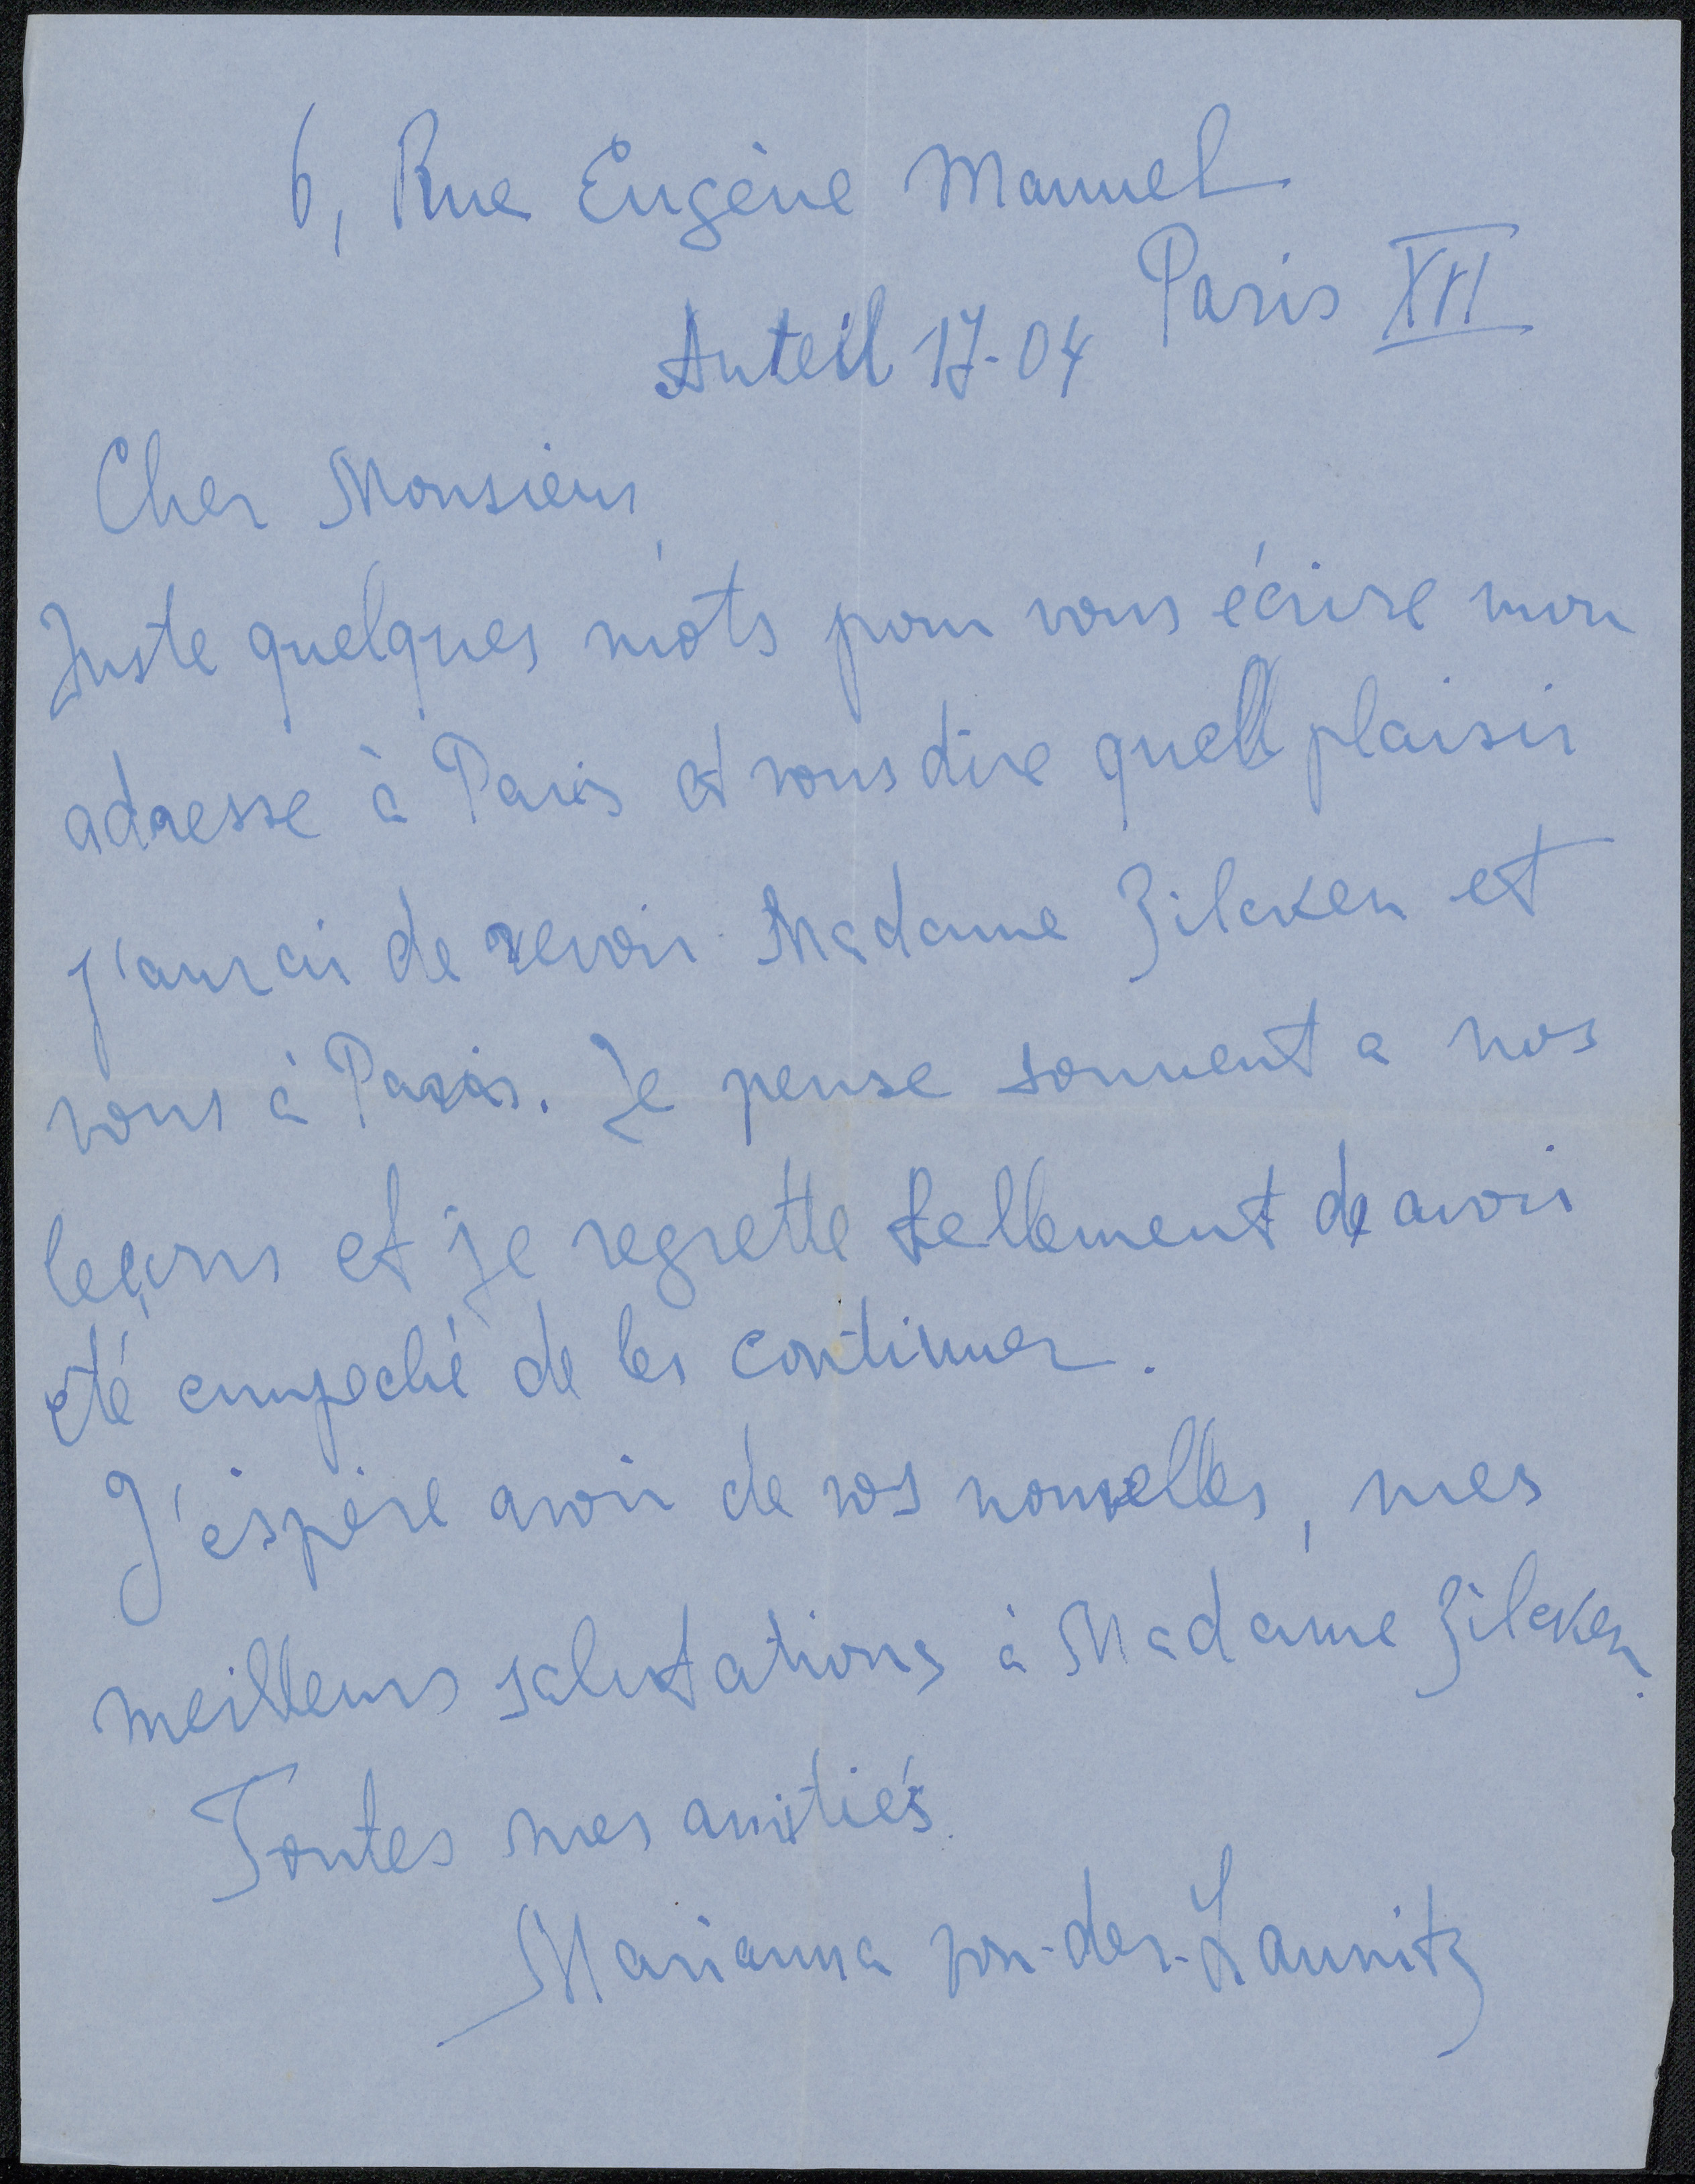 6, Rue Eugène Manuel
Paris XVI
Auteil 17-04
Cher Monsieur,
Juste quelques mots pour vous écrire mon
adresse à Paris et vous dire quell plaisir
j'aurai de revoir Madame Zilcken et
vous à Paris. Je pense souvent a nos
leçons et je regrette tellement de avoir
été empeché de les continuer.
J'espère avoir de vos nouvelles, mes
meilleurs salutations à Madame Zilcken.
Toutes mes amitiés.
Marianna von-der-Launitz